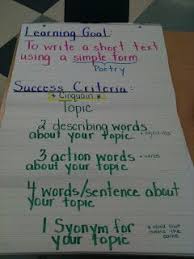 Learning Goal:
To write a short text
using a simple form
Poetry
Success Criteria:
* Cinquain *
Topic
2 describing words
about your topic
3 action words
about your topic
4 words/sentence about
your topic
1 Synonym for
your topic
a word that
means the
same